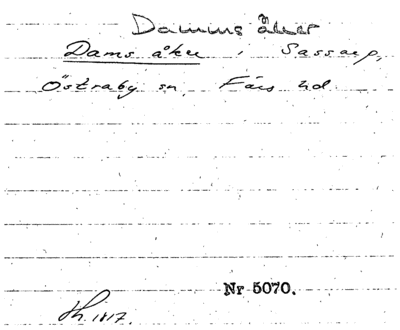 Damms åker
Dams åker, Sassarp,
Östraby sn, Färs hd.
Nr 5070.
1817.